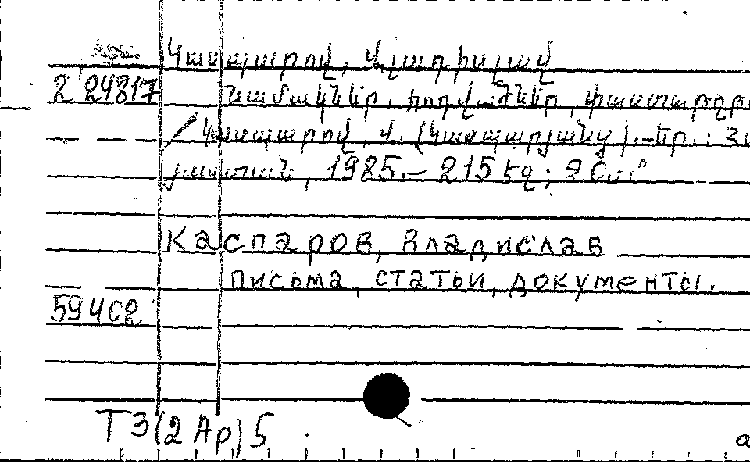 Կասպարով, Վլադիսլավ
2 24817 Նամակներ, հոդվածներ, փաստաթղթ
/ Կասպարով, Վ. (Կասպարյանց).–Եր.: Հա
յաստան, 1985.– 215 էջ;
Каспаров, Владислав
письма, статьи, документы.
594C2
Т3(2Ар)5